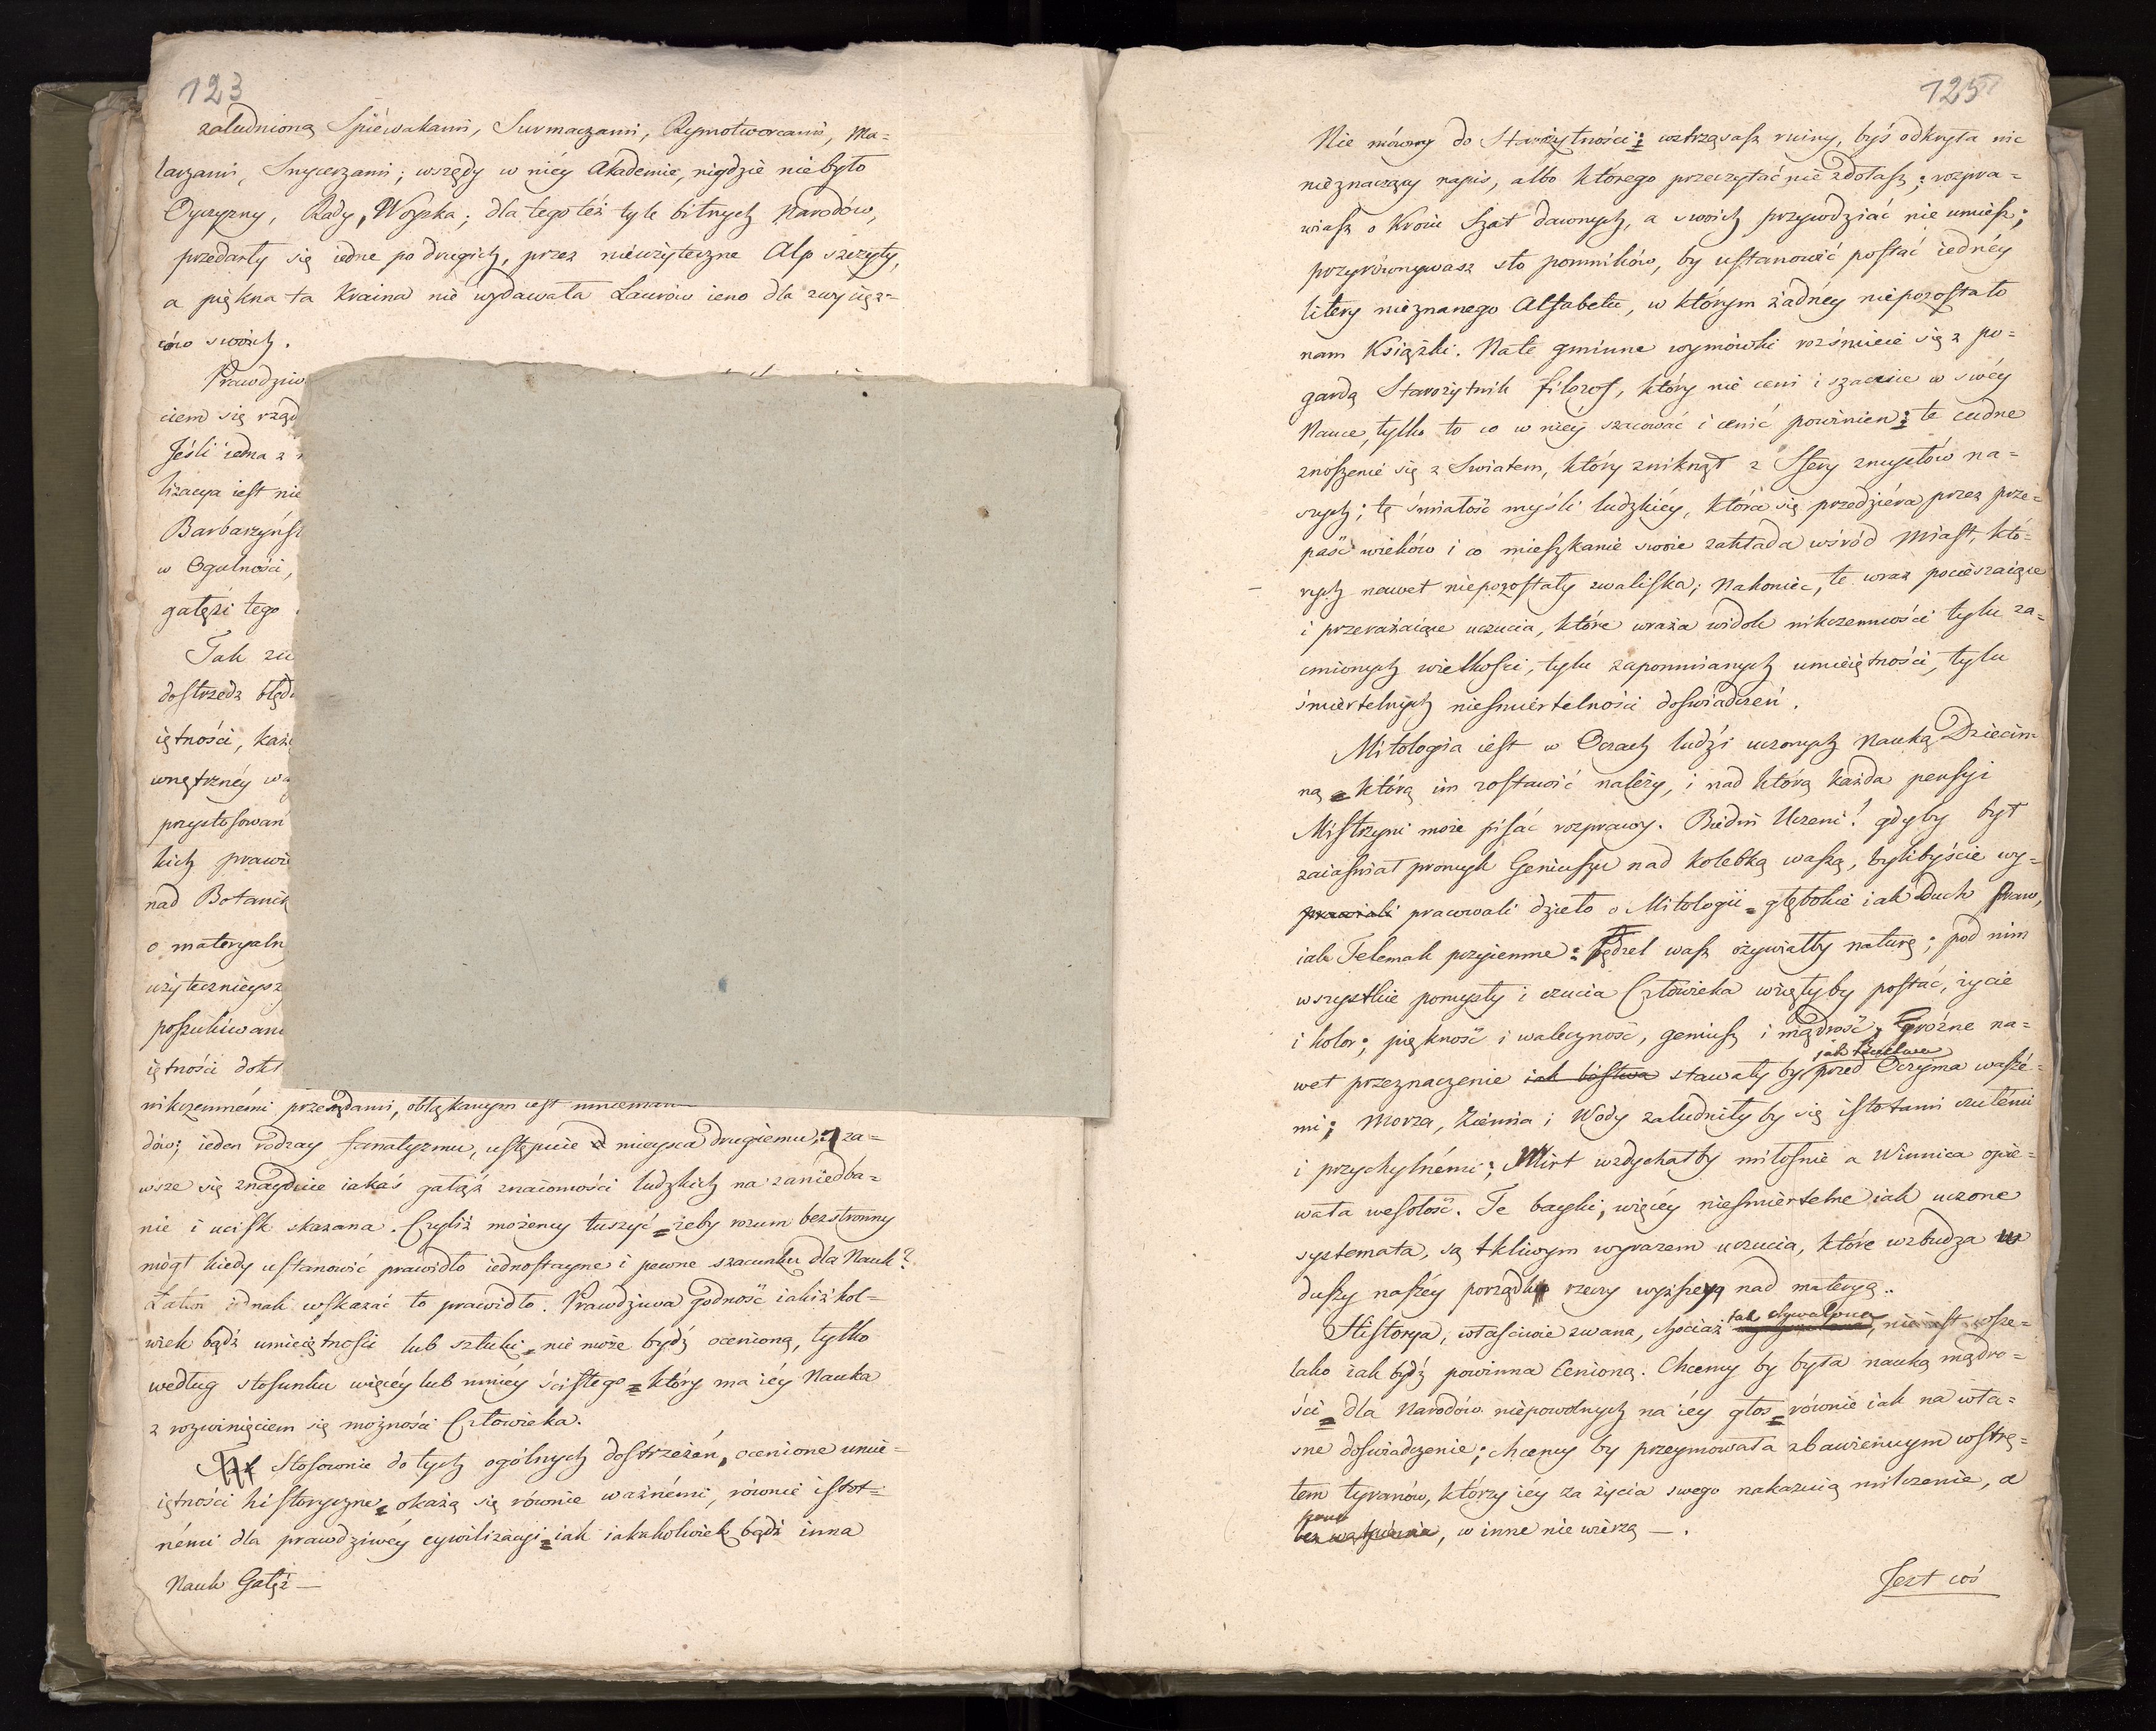 123
zaludnioną Śpiewakami, Surmaczami, Rymotworcami, Ma=
larzami, Snycerzami; wszędy w niéy Akademie, nigdzie niebyło
Oyczyzny, Rady, Woyska; dla tego też tyle bitnych Narodów,
przedarły się iedne po drugich, przez nieużyteczne Alp szczyty,
a piękna ta Kraina nie wydawała Laurów ieno dla zwycięz=
ców swoich.
Prawdziw
ciem się rząd
Jeśli iedna z
lizacya iest nie
Barbarzyńst
w Ogulności,
gałęzi tego
Tak
dostrzedz błęd
iętności, każ
wnętrznéy wa
przystosowan
kich prawi
nad Botanik
o materyaln
użytecznieysz
poszukiwan
iętności dokt
nikczemnémi przesądami, obłąkanym iest
dów; ieden rodzay fanatyzmu, ustępuie mieysca drugiemu, za=
wsze się znayduie iakaś gałąź znaiomości ludzkich na zaniedba=
nie i ucisk skazana. Czyliż możemy tuszyć żeby rozum bezstronny
mógł kiedy ustanowić prawidło iednostayne i pewne szacunku dla Nauk?
Łatwo iednak wskazać to prawidło. Prawdziwa godność iakiźkol=
wiek bądź umieiętności lub sztuki, nie może bydź ocenioną, tylko
według stosunku więcéy lub mniéy ścisłego, który ma iéy Nauka
z rozwinięciem się możności Człowieka.
Stosownie do tych ogólnych dostrzeżeń, ocenione umie=
iętności historyczne, okażą się równie ważnémi, równie istot=
némi dla prawdziwéy cywilizacyi, iak iakakolwiek bądź inna
Nauk Gałęź —
125
Nie mówmy do Starożytności: wstrząsasz ruiny, byś odkryła nic
nieznaczący napis, albo którego przeczytać nie zdołasz; rozpra=
wiasz o Kroiu Szat dawnych, a swoich przywdziać nie umiesz;
przyrównywasz sto pomników, by ustanowić postać iednéy
litery nieznanego Alfabetu, w którym żadnéy niepozostało
nam Książki. Na te gminne wymówki rozśmieie się z po=
gardą Starożytnik filozof, który nie ceni i szacuie w swéy
Nauce, tylko to co w niéy szacować i cenić powinien: te cudne
znoszenie się z Swiatem, który zniknął z Sfery zmysłów na=
szych; tę śmiałość myśli ludzkiéy, która się przedziéra przez prze=
paść wieków i co mieszkanie swoie zakłada wśród Miast, któ=
rych nawet niepozostały zwaliska; Nakoniec, te wraz pocieszaiące
i przerażaiące uczucia, które wraża widok nikczemności tylu za=
ćmionych wielkości, tylu zapomnianych umieiętności, tylu
śmiertelnych nieśmiertelności doświadczeń.
Mitologia iest w Oczach ludzi uczonych Nauką Dziecin=
ną, którą im zostawić należy, i nad którą każda pensyi
Mistrzyni może pisać rozprawy. Biedni Uczeni! gdyby był
zaiaśniał promyk Geniuszu nad kolebką waszą, bylibyście wy=
pracowali dzieło o Mitologii, głębokie iak Duch praw,
iak Telemak przyiemne: pędzel wasz ożywiałby naturę; pod nim
wszystkie pomysły i czucia Człowieka wzięłyby postać, życie
i kolor; piękność i waleczność, geniusz i mądrość, Groźne na=
jak bóstwa
wet przeznaczenie iak bóstwa stawały by przed Oczyma waszé=
mi; Morza, Ziemia i Wody zaludniły by się istotami czułémi
i przychylnémi; Mirt wzdychałby miłośnie a Winnica opie=
wała wesołość. Te bayki, więcéy nieśmiertelne iak uczone
systemata, są tkliwym wyrazem uczucia, które wzbudza w
duszy naszéy porządku rzeczy wyższego nad materyą..
tak chwalona
Historya, właściwie zwana, chociaż , nie iest wsze=
lako iak bydź powinna Cenioną. Chcemy by była nauką mądro=
ści, dla Narodów niepowolnych na iéy głos, równie iak na wła=
sne doświadczenie; chcemy by przeymowała zbawiennym wstrę=
tem tyranów, którzy iéy za życia swego nakazuią milczenie, a
bez wątpienia, w inne nie wierzą —.
Jest coś